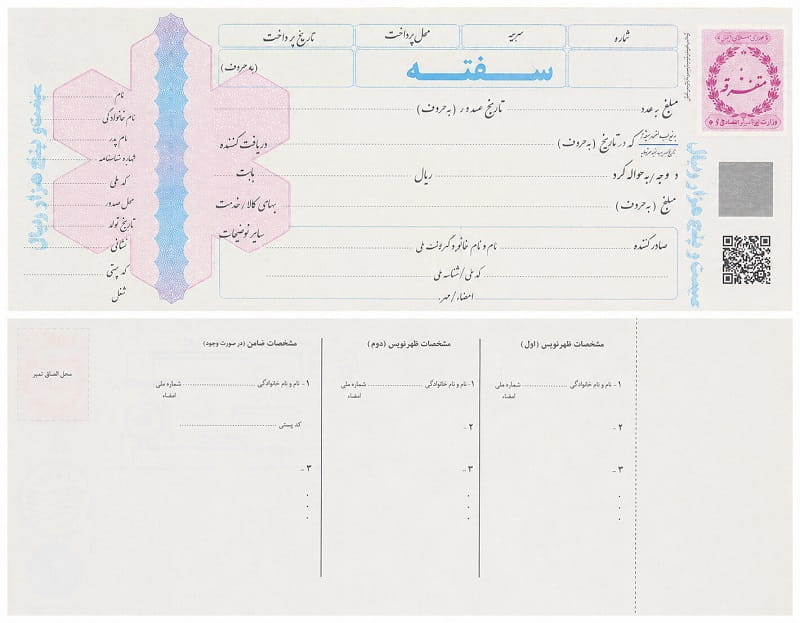 شماره
سریه
محل پرداخت
تاریخ پرداخت
سفته
(به حروف)
مبلغ بر عدد
تاریخ صدور (به حروف)
که در تاریخ (به حروف)
دریافت کننده
د وجه/به حواله کرد
ریال
بابت
مبلغ (به حروف)
بهای کالا/خدمت
سایر توضیحات
صادر کننده
کد ملی/شناسه ملی
امضاء/مهر.
نام
نام خانوادگی
نام پدر
شماره شناسنامه
کد ملی
محل صدور
تاریخ تولد
نشانی
کد پستی
شغل
متفرقه
مشخصات ظهرنویس (اول)
۱- نام و نام خانوادگی ........ شماره ملی
امضاء
۲-
۳-
مشخصات ظهرنویس (دوم)
۱- نام و نام خانوادگی ........ شماره ملی
امضاء
۲-
۳-
مشخصات ضامن (در صورت وجود)
۱- نام و نام خانوادگی ........ شماره ملی
امضاء
کد پستی ........
۳-
محل الصاق تمبر